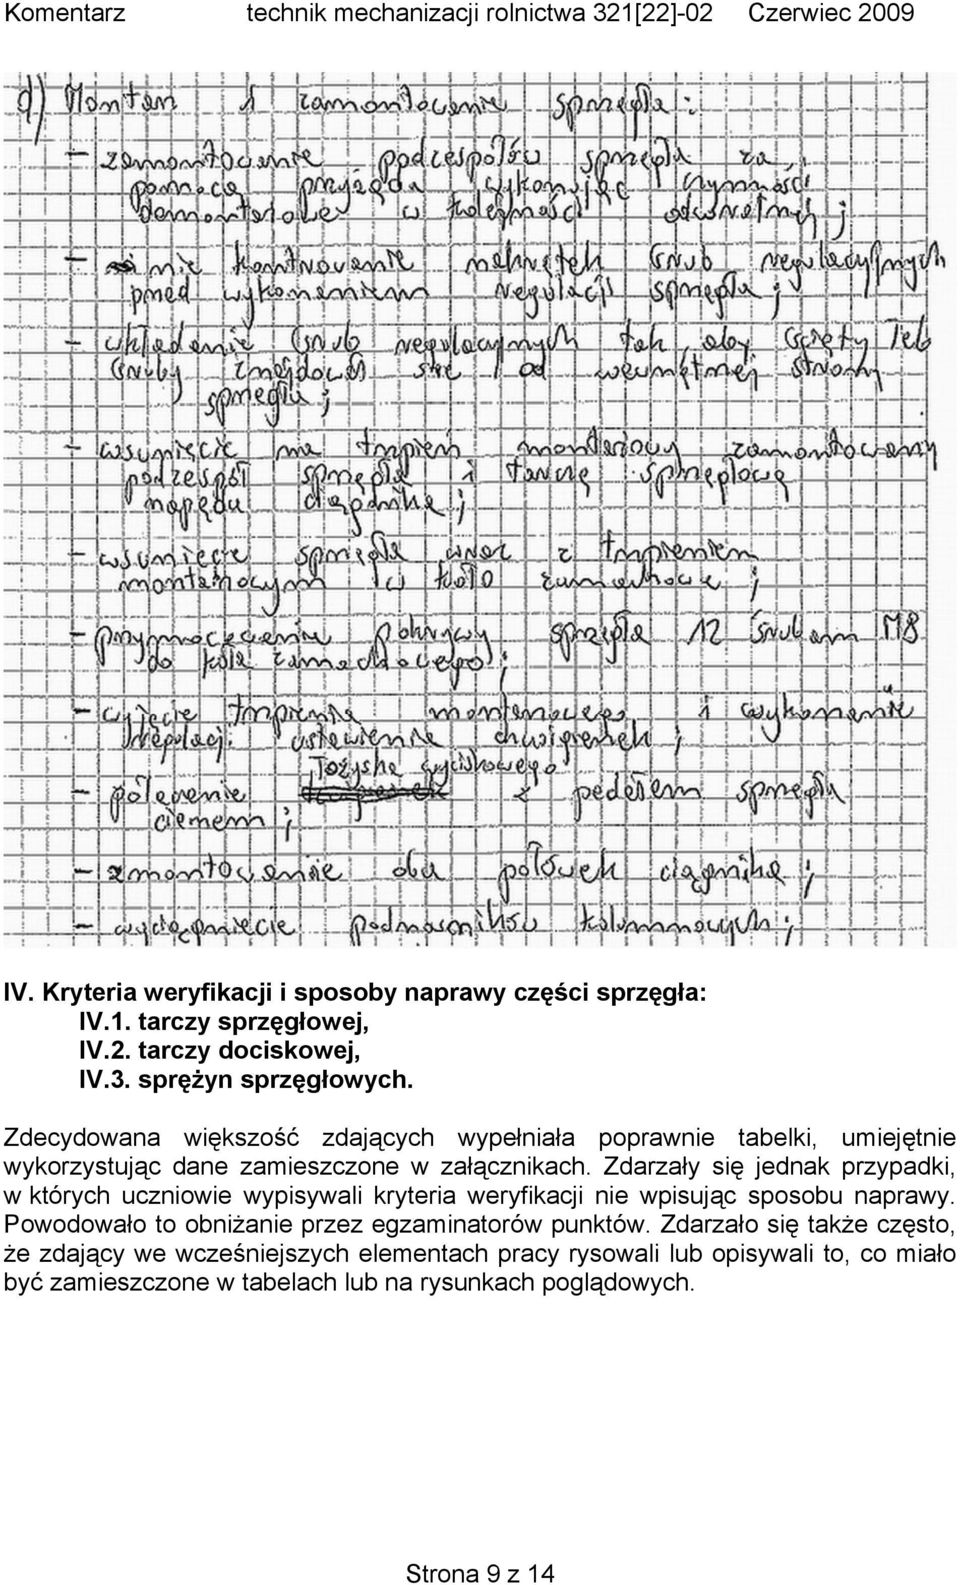 Komentarz technik mechanizacji rolnictwa 321[22]-02 Czerwiec 2009
d) Montaż i zamontowanie sprzęgła:
- zamontowanie podzespołów sprzęgła za
pomocą przyrządu wykonując czynności
demontażowe w kolejności odwrotnej;
- nie kontrowanie nakrętek śrub regulacyjnych
przed wykonaniem regulacji sprzęgła;
- wkładanie śrub regulacyjnych tak, aby ścięty łeb
śruby znajdował się od wewnętrznej strony
sprzęgła;
- wsunięcie na trzpień montażowy zamontowany
podzespół sprzęgła i tarczę sprzęgłową
napędu ciągnika;
- wsunięcie sprzęgła wraz z trzpieniem
montażowym w koło zamachowe;
- przymocowanie pokrywy sprzęgła 12 śrubam M8
do koła zamachowego;
- wyjęcie trzpienia montażowego i wykonanie
regulacji ustawienia dźwigienek;
łożyska wyciskowego
- połączenie z pedałem sprzęgła
cięgnem;
- zmontowanie obu połówek ciągnika;
- wyciągnięcie podnośników kolumnowych;
IV. Kryteria weryfikacji i sposoby naprawy części sprzęgła:
IV.1. tarczy sprzęgłowej,
IV.2. tarczy dociskowej,
IV.3. sprężyn sprzęgłowych.
Zdecydowana większość zdających wypełniała poprawnie tabelki, umiejętnie
wykorzystując dane zamieszczone w załącznikach. Zdarzały się jednak przypadki,
w których uczniowie wypisywali kryteria weryfikacji nie wpisując sposobu naprawy.
Powodowało to obniżanie przez egzaminatorów punktów. Zdarzało się także często,
że zdający we wcześniejszych elementach pracy rysowali lub opisywali to, co miało
być zamieszczone w tabelach lub na rysunkach poglądowych.
Strona 9 z 14